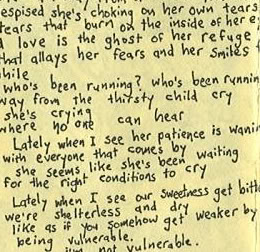 espised she's chokin on her own tears
tears that burn on the inside of her e
d love is the ghost of her refuge
that allays her fears and her smiles f
hile
who's been running? who's been runnin
way from the thirsty child cry
she's crying
where no one can hear
Lately when I see her patience is wanin
with everyone that comes by
she seems like she's been waiting
for the right conditions to cry
Lately when I see our sweetness get bitt
we're shelterless and dry
like as if you somehow get weaker by
being vulnerable.
not vulnerable.